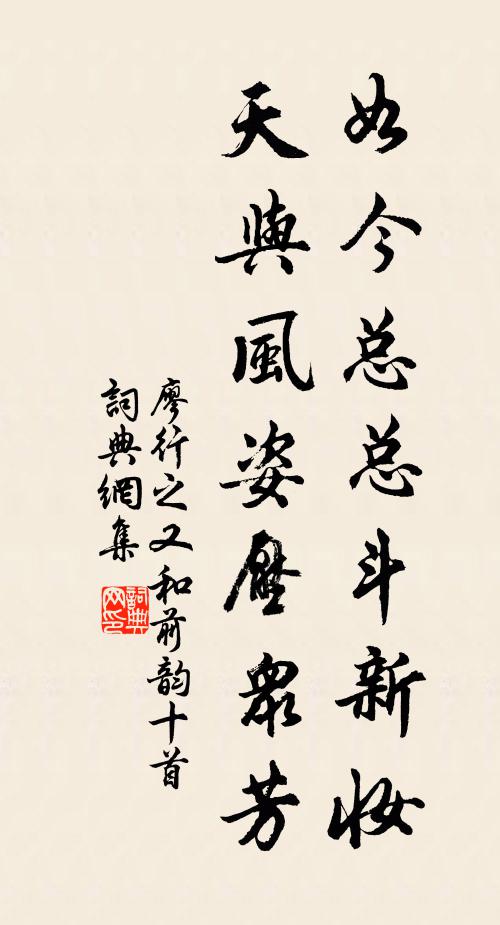 如今总总斗新妆
天與風姿壓眾芳
廖行之又和前韵十首
詞典網集
詞典
网印